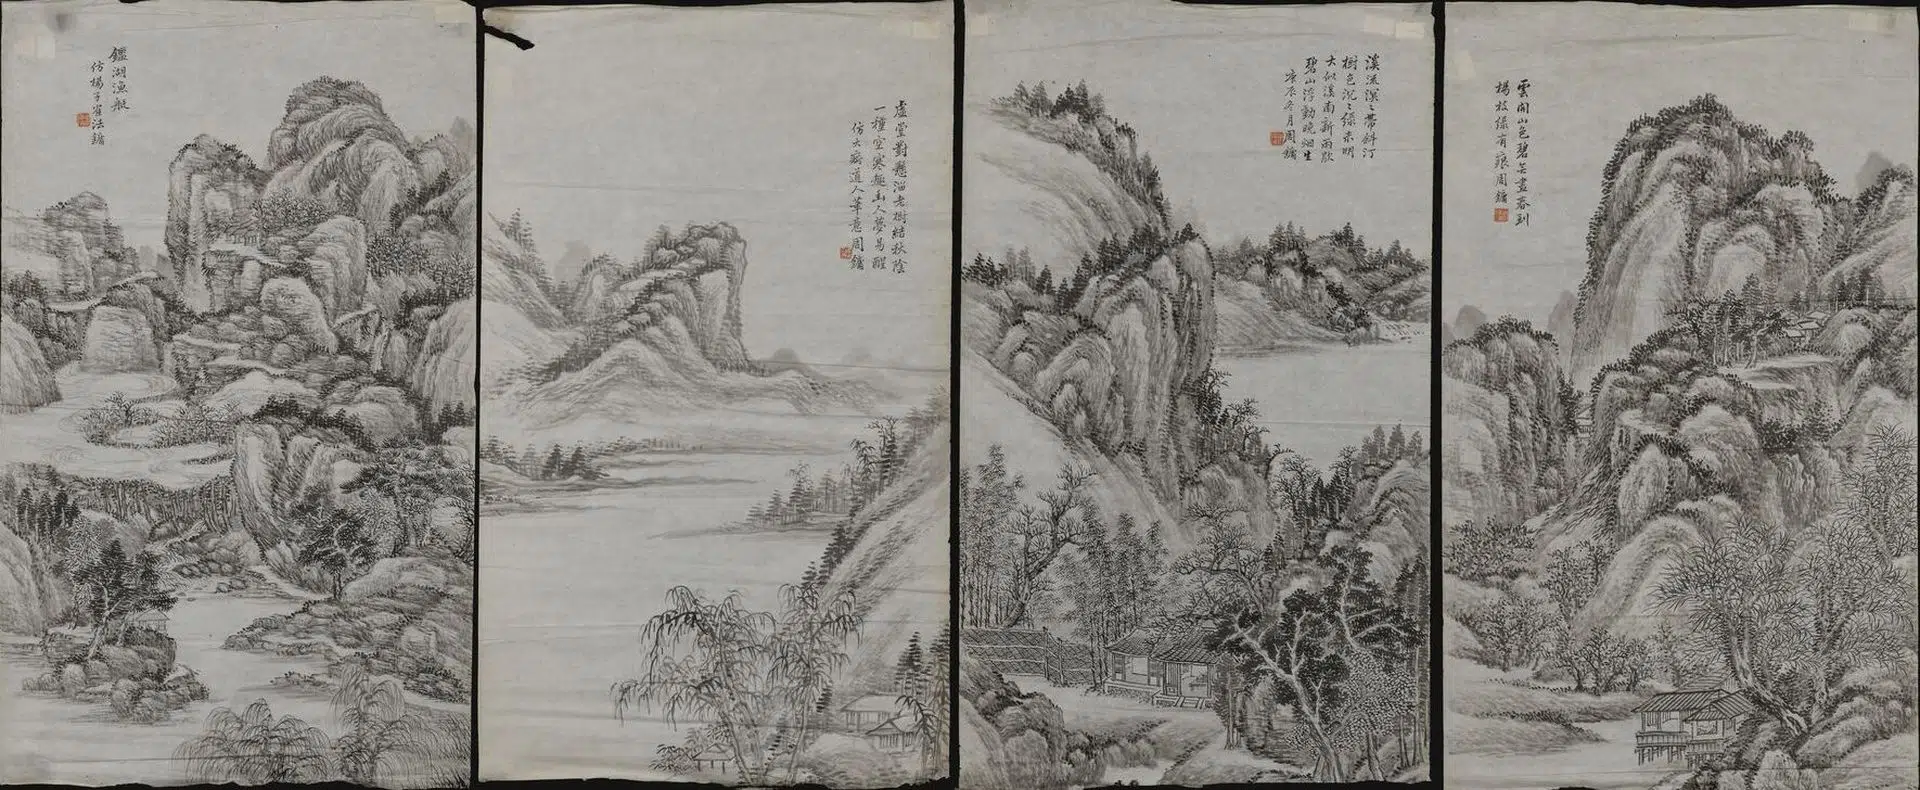 鑑湖漁艇
仿楊子崔法鏞
虛堂對懸溜老樹結秋陰
一種空寒趣幽人夢易醒
仿大癡道人筆意周鏞
溪流漠々帶斜汀
樹色沉々綠未明
大似溪南新雨歇
碧山浮動晚烟生
庚辰冬月周鏞
雲開山色碧無盡春到
楊枝綠有痕周鏞